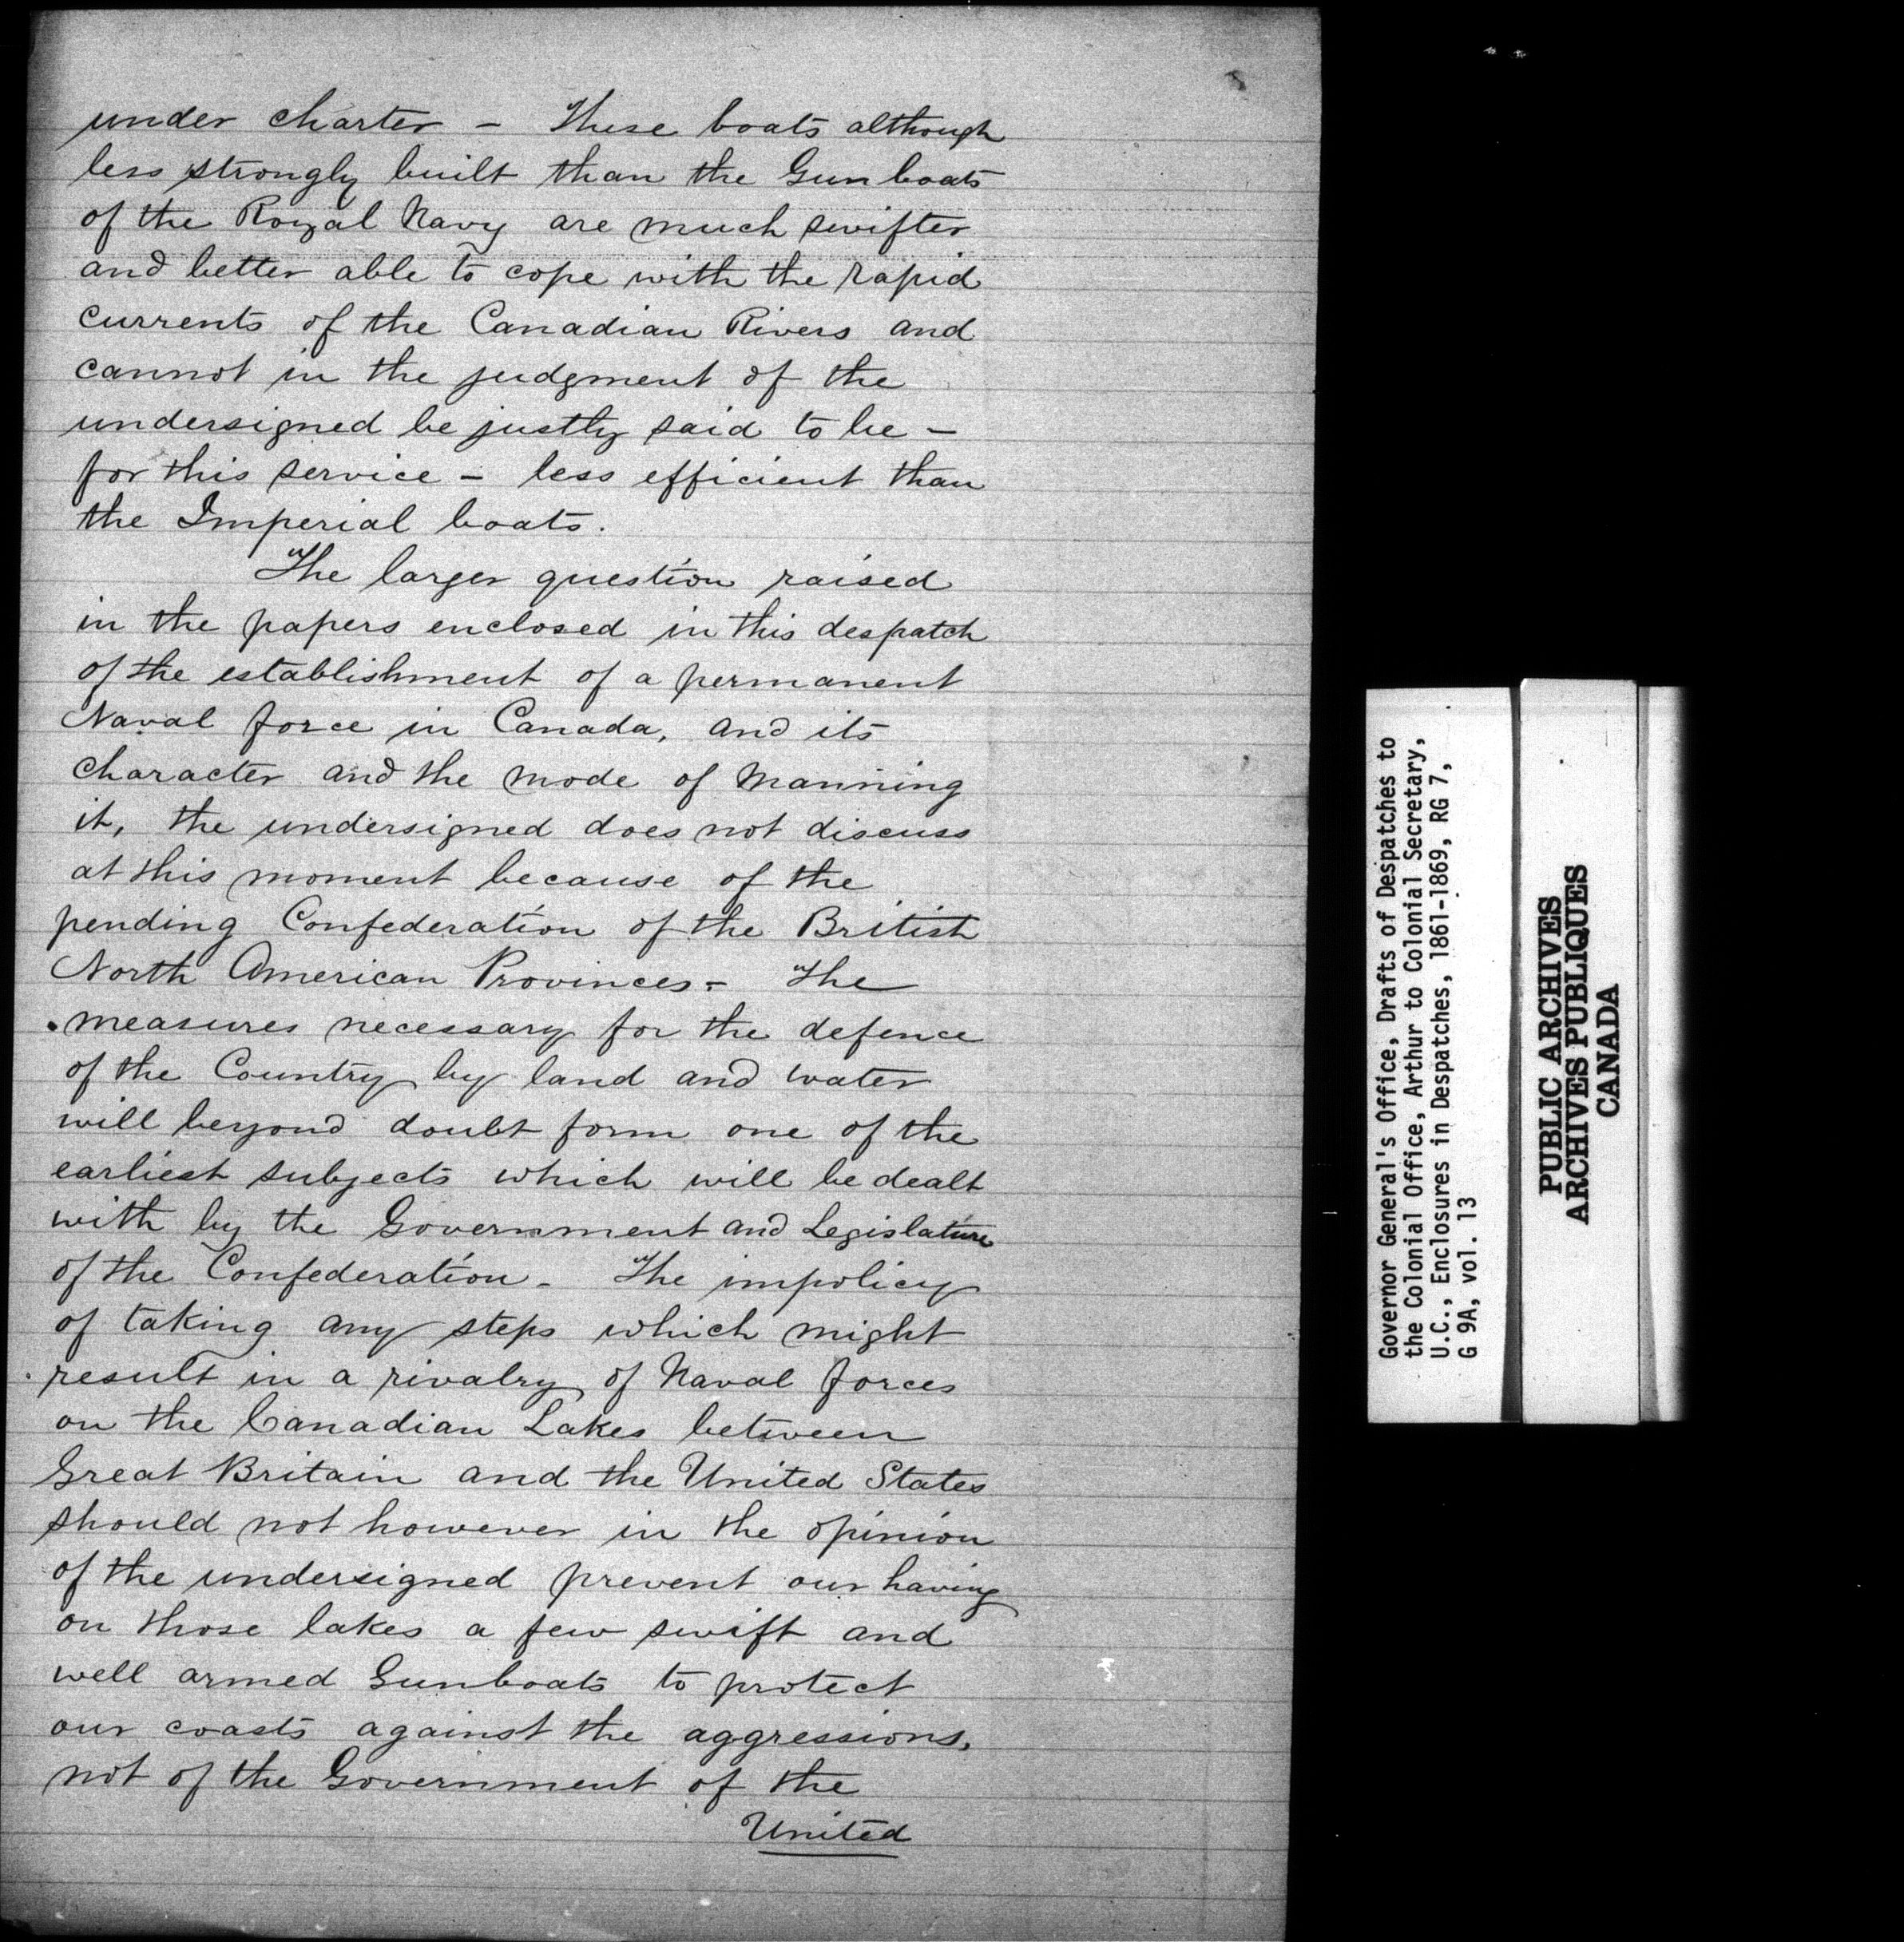 under charter - These boats although
less strongly built than the Gun boats
of the Royal Navy are much swifter
and better able to cope with the rapid
currents of the Canadian Rivers and
cannot in the judgment of the
undersigned be justly said to be -
for this service - less efficient than
the Imperial boats.
The larger question raised
in the papers enclosed in this despatch
of the establishment of a permanent
Naval force in Canada, and its
character and the mode of Manning
it, the undersigned does not discuss
at this moment because of the
pending Confederation of the British
North American Provinces - The
measures necessary for the defence
of the Country by land and water
will beyond doubt form one of the
earliest subjects which will be dealt
with by the Government and Legislature
of the Confederation - The impolicy
of taking any steps which might
result in a rivalry of Naval forces
on the Canadian Lakes between
Great Britain and the United States
should not however in the opinion
of the undersigned prevent our having
on those lakes a few swift and
well armed Gunboats to protect
our coasts against the aggressions,
not of the Government of the
United
Governor General's Office, Drafts of Despatches to
the Colonial Office, Arthur to Colonial Secretary,
U.C., Enclosures in Despatches, 1861-1869, RG 7,
G 9A, vol. 13
PUBLIC ARCHIVES
ARCHIVES PUBLIQUES
CANADA